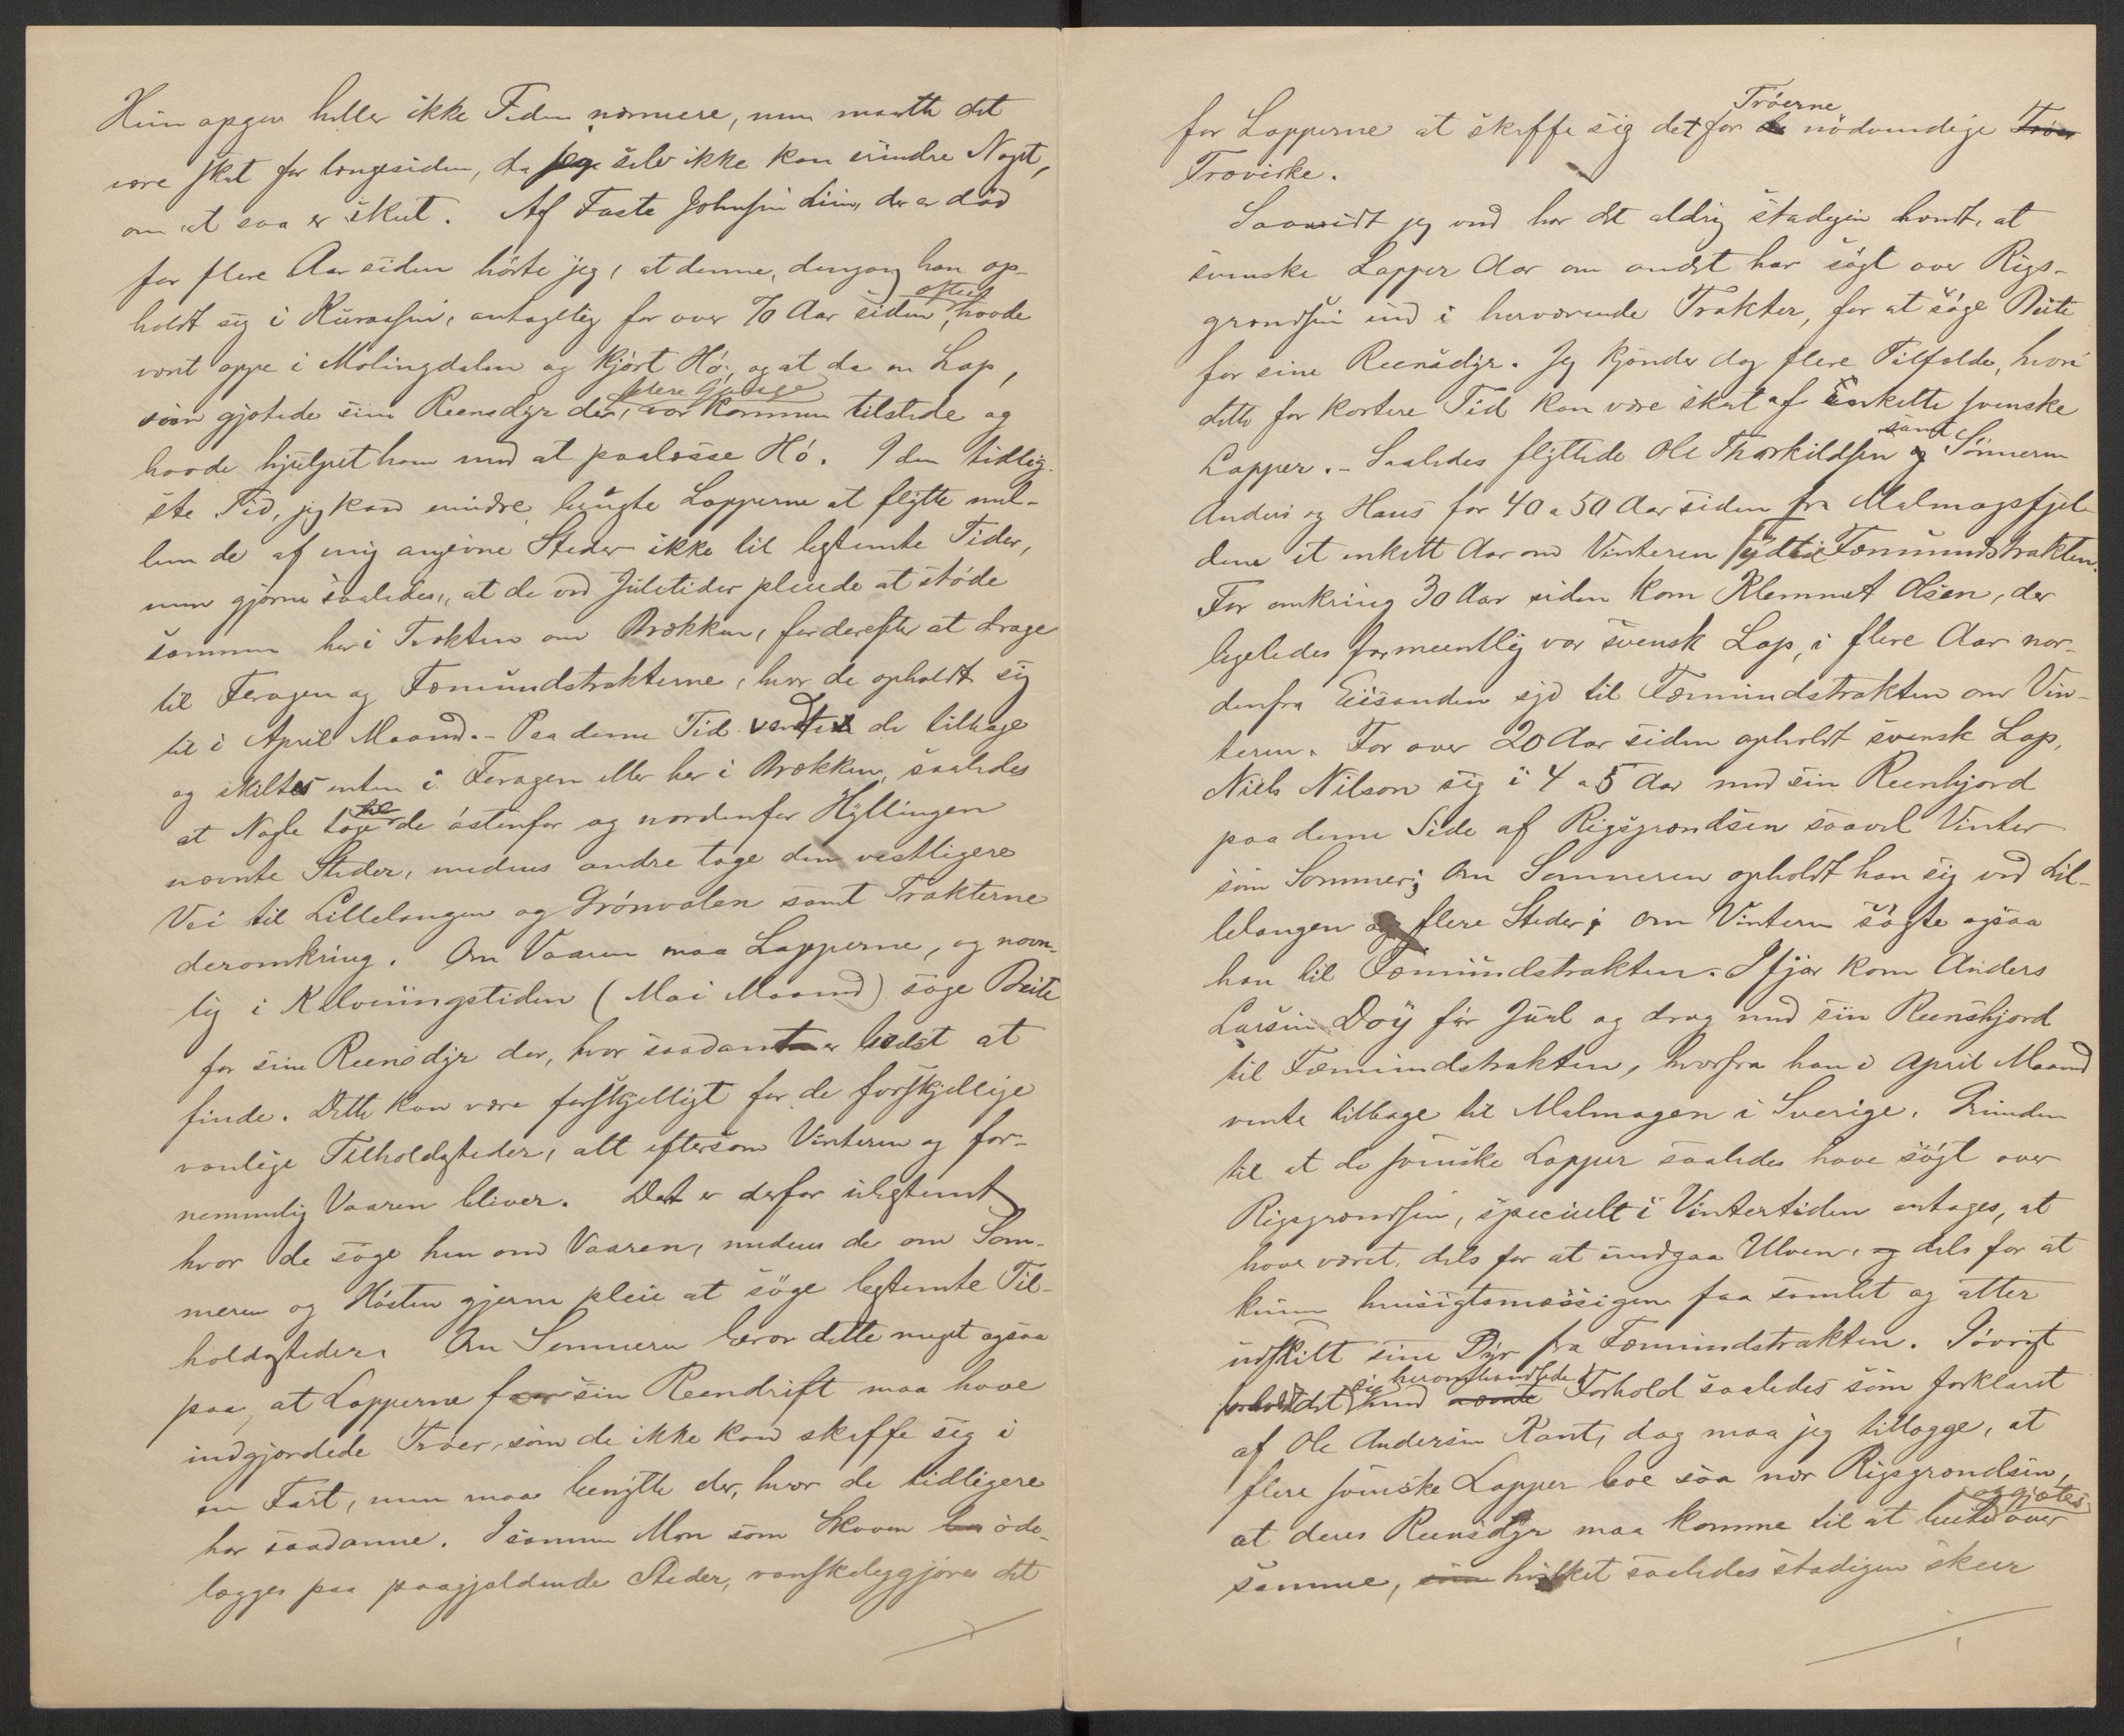 Hun opgav heller ikke Tiden nærmere, men maatte det
være skeet for længesiden, da jeg selv ikke kan erindre Noget,
om at saa er skeet. Af Faste Johnsen Lien, der er död
for flere Aar siden hörte jeg, at denne, dengang han op-
holdt sig i Kuraasen, antagelig for over 70 Aar siden, oftere havde
været oppe i Molingdalen og kjört Hö, og at da en Lap,
som gjætede sine Reensdyr der, flere Gange var kommen tilstede og
havde hjulpet ham med at paalæsse Hö. I den tidlig-
ste Tid, jeg kan erindre, brugte Lapperne at flytte mel-
lem de af mig angivne Steder ikke til bestemte Tider,
men gjerne saaledes, at de ved Juletider pleiede at støde
sammen her i Trakten om Brækken, for derefter at drage
til Feragen og Fæmundstrakterne, hvor de opholdt sig
til i April Maaned. - Paa denne Tid vendte de tilbage
og skiltes enten i Feragen eller her i Brækken, saaledes
at Nogle toge til de östenfor og nordenfor Hyllingen
nævnte Steder, medens andre toge den vestligere
Vei til Lillelangen og Grönvolen samt Trakterne
deromkring. Om Vaaren maa Lapperne, og navn-
lig i Kalvningstiden (Mai Maaned) söge Beite
for sine Reensdyr der, hvor saadant er bedst at
finde. Dette kan være forskjelligt for de forskjellige
vanlige Tilholdssteder, alt eftersom Vinteren og for-
nemmelig Vaaren bliver. Det er derfor ubestemt
hvor de söge hen om Vaaren, medens de om Som-
meren og Hösten gjerne pleie at söge bestemte Til-
holdssteder. Om Sommeren beror dette meget ogsaa
paa, at Lapperne for sin Reendrift maa have
indgjærdede Tröer, som de ikke kan skaffe sig i
en Fart, men maa benytte der, hvor de tidligere
har saadanne. I samme Mon som Skoven öde-
lægges paa paagjældende Steder, vanskeliggjöres det
for Lapperne at skaffe sig det for Tröerne nödvendige
Trævirke.
Saavidt jeg ved har det aldrig stadigen hændt, at
svenske Lapper Aar om andet har sögt over Rigs-
grændsen ind i herværende Trakter, for at söge Beite
for sine Reensdyr. Jeg kjender dog flere Tilfælde, hvori
dette for kortere Tid kan være skeet af Enkelte svenske
Lapper. - Saaledes flyttede Ole Thorkildsen samt Sönnerne
Anders og Hans for 40 a 50 Aar siden fra Malmagsfjel-
dene et enkelt Aar om Vinteren syd til Fæmundstrakten.
For omkring 30 Aar siden kom Klemmet Olsen, der
ligeledes formeentlig var svensk Lap, i flere Aar nor-
denfra Eisanden syd til Fæmundstrakten om Vin-
teren. For over 20 Aar siden opholdt svensk Lap,
Niels Nilson sig i 4 a 5 Aar med sin Reenhjord
paa denne Side af Rigsgrændsen saavel Vinter
som Sommer; Om Sommeren opholdt han sig ved Lil-
lelangen og flere Steder; om Vinteren sögte ogsaa
han til Fæmundstrakten. Ifjor kom Anders
Larsen Doÿ för Juul og drog med sin Reenshjord
til Fæmundstrakten, hvorfra han i April Maaned
vendte tilbage til Malmagen i Sverige. Grunden
til at de svenske Lapper saaledes have sögt over
Rigsgrændsen, specielt i Vintertiden antages, at
have været, dels for at undgaa Ulven, og dels for at
kunne hensigtsmæssigen faa samlet og atter
udskilt sine Dyr fra Fæmundstrakten. Iövrigt
forholdt det sig med heromhandlede Forhold saaledes som forklaret
af Ole Andersen Kant, dog maa jeg tillægge, at
flere svenske Lapper boe saa nær Rigsgrændsen,
at deres Reensdyr maa komme til at beite og gjætes over
samme, hvilket saaledes stadigen skeer